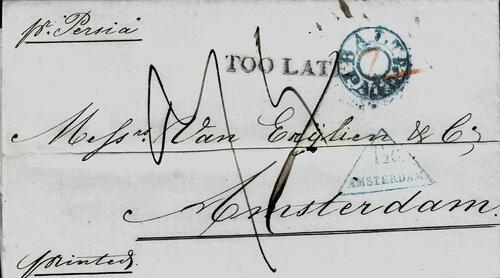 pr. "Persia"
BALT. PAID
TOO LATE
Messrs. Van Eeghen & Co;
1½C.
AMSTERDAM
Amsterdam
printed.